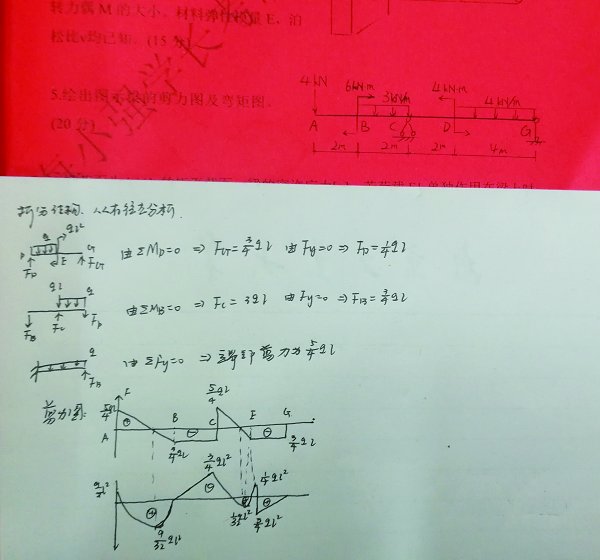 转力偶 M 的大小。材料弹性模量 E、泊
松比 ν 均已知。(15 分)
5.绘出图示梁的剪力图及弯矩图。
(20 分)
4kN 6kN·m 3kN/m 4kN·m 4kN/m
A B C D G
2m 2m 2m 4m
拆分结构,从右往左分析.
q ql²
D E G
F_D F_G
由ΣM_D=0 ⇒ F_G=3/4ql 由F_y=0 ⇒ F_D=1/4ql
ql q
F_B F_C F_D
由ΣM_B=0 ⇒ F_C=3ql 由F_y=0 ⇒ F_B=3/4ql
q
F_B
由ΣF_y=0 ⇒ 端部剪力为5/4ql
剪力图: 5/4ql F 5/4ql
A B C E G
⊕ ⊖ ⊖
3/4ql 3/4ql
3/4ql² 1/4ql²
⊕ ⊖
9/32ql² 1/32ql² 3/4ql²